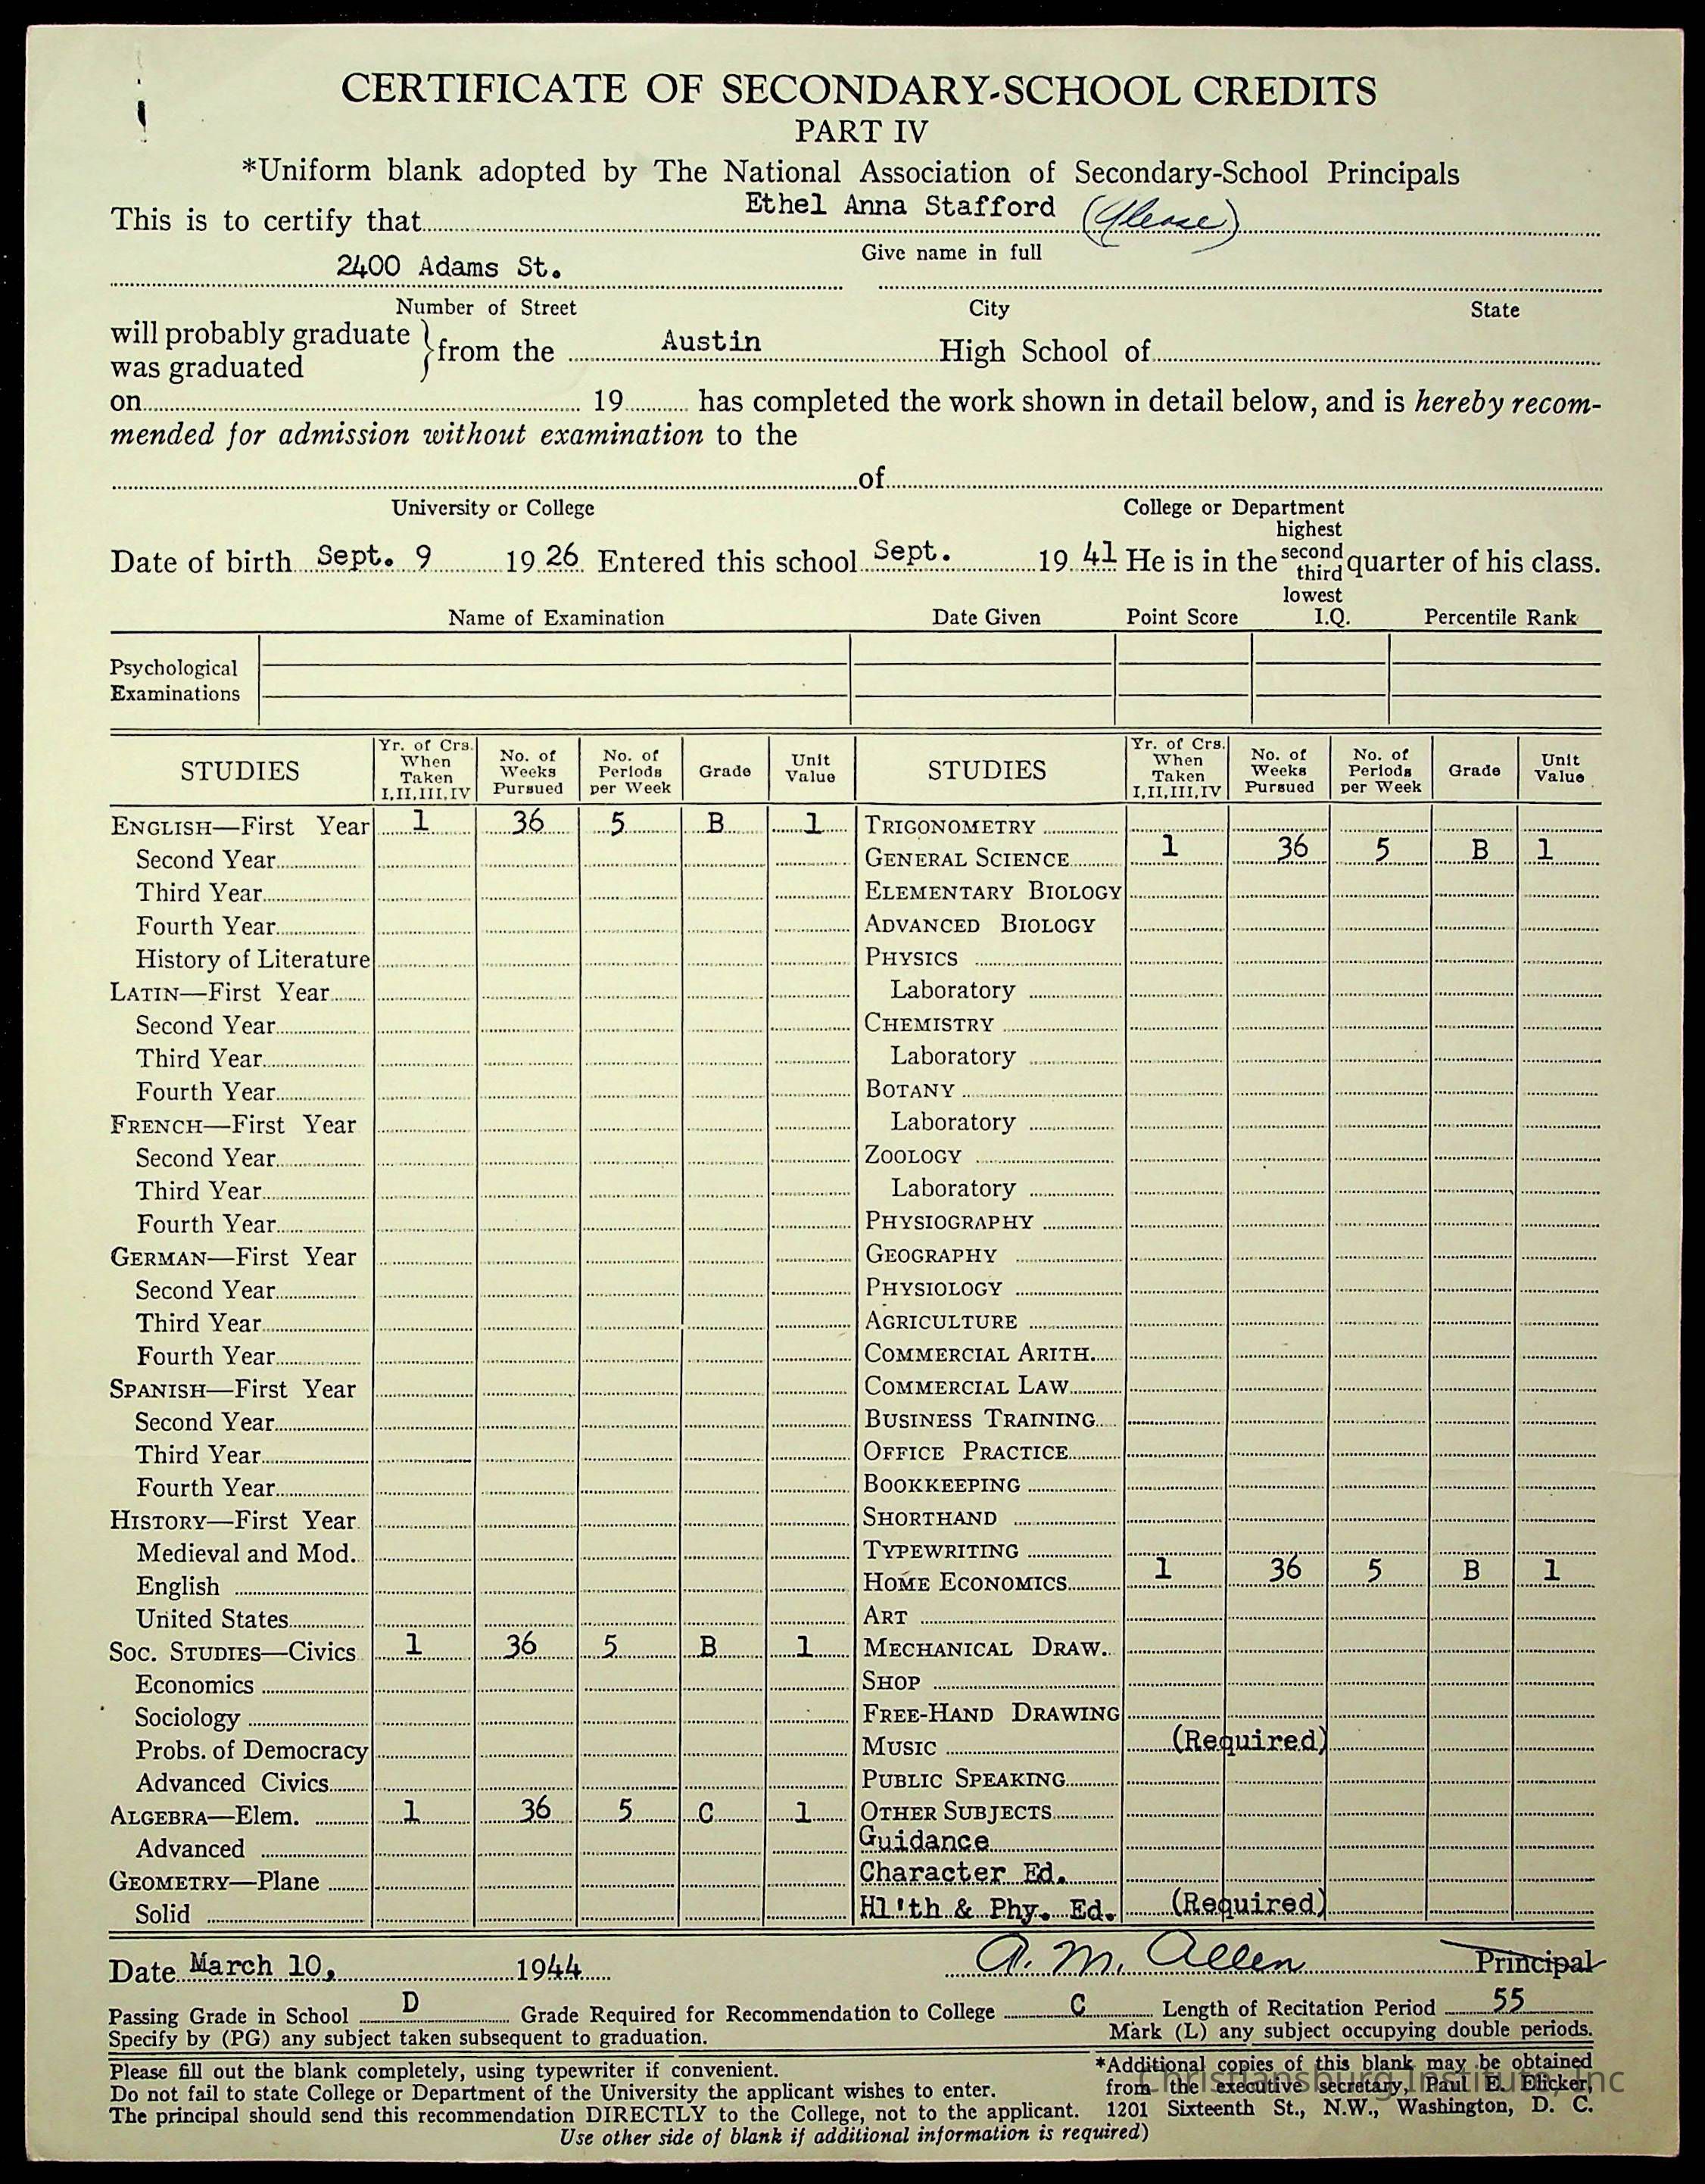 CERTIFICATE OF SECONDARY-SCHOOL CREDITS
PART IV
*Uniform blank adopted by The National Association of Secondary-School Principals
This is to certify that Ethel Anna Stafford
Give name in full
2400 Adams St.
Number of Street City State
will probably graduate
was graduated } from the Austin High School of
on 19 has completed the work shown in detail below, and is hereby recom-
mended for admission without examination to the
of
University or College College or Department
highest
Date of birth Sept. 9 19 26 Entered this school Sept. 19 41 He is in the second quarter of his class.
third
lowest
Name of Examination Date Given Point Score I.Q. Percentile Rank
Psychological
Examinations
STUDIES Yr. of Crs. When Taken I,II,III,IV No. of Weeks Pursued No. of Periods per Week Grade Unit Value STUDIES Yr. of Crs. When Taken I,II,III,IV No. of Weeks Pursued No. of Periods per Week Grade Unit Value
ENGLISH—First Year 1 36 5 B 1 TRIGONOMETRY
Second Year GENERAL SCIENCE 1 36 5 B 1
Third Year ELEMENTARY BIOLOGY
Fourth Year ADVANCED BIOLOGY
History of Literature PHYSICS
LATIN—First Year Laboratory
Second Year CHEMISTRY
Third Year Laboratory
Fourth Year BOTANY
FRENCH—First Year Laboratory
Second Year ZOOLOGY
Third Year Laboratory
Fourth Year PHYSIOGRAPHY
GERMAN—First Year GEOGRAPHY
Second Year PHYSIOLOGY
Third Year AGRICULTURE
Fourth Year COMMERCIAL ARITH.
SPANISH—First Year COMMERCIAL LAW
Second Year BUSINESS TRAINING
Third Year OFFICE PRACTICE
Fourth Year BOOKKEEPING
HISTORY—First Year SHORTHAND
Medieval and Mod. TYPEWRITING
English HOME ECONOMICS 1 36 5 B 1
United States ART
SOC. STUDIES—Civics 1 36 5 B 1 MECHANICAL DRAW.
Economics SHOP
Sociology FREE-HAND DRAWING
Probs. of Democracy MUSIC (Required)
Advanced Civics PUBLIC SPEAKING
ALGEBRA—Elem. 1 36 5 C 1 OTHER SUBJECTS
Advanced Guidance
GEOMETRY—Plane Character Ed.
Solid Hl'th & Phy. Ed. (Required)
Date March 10, 1944 A. M. Allen Principal
Passing Grade in School D Grade Required for Recommendation to College C Length of Recitation Period 55
Specify by (PG) any subject taken subsequent to graduation. Mark (L) any subject occupying double periods.
Please fill out the blank completely, using typewriter if convenient.
Do not fail to state College or Department of the University the applicant wishes to enter.
The principal should send this recommendation DIRECTLY to the College, not to the applicant.
*Additional copies of this blank may be obtained
from the executive secretary, Paul E. Elicker,
1201 Sixteenth St., N.W., Washington, D. C.
Use other side of blank if additional information is required)
Christiansburg Institute, Inc